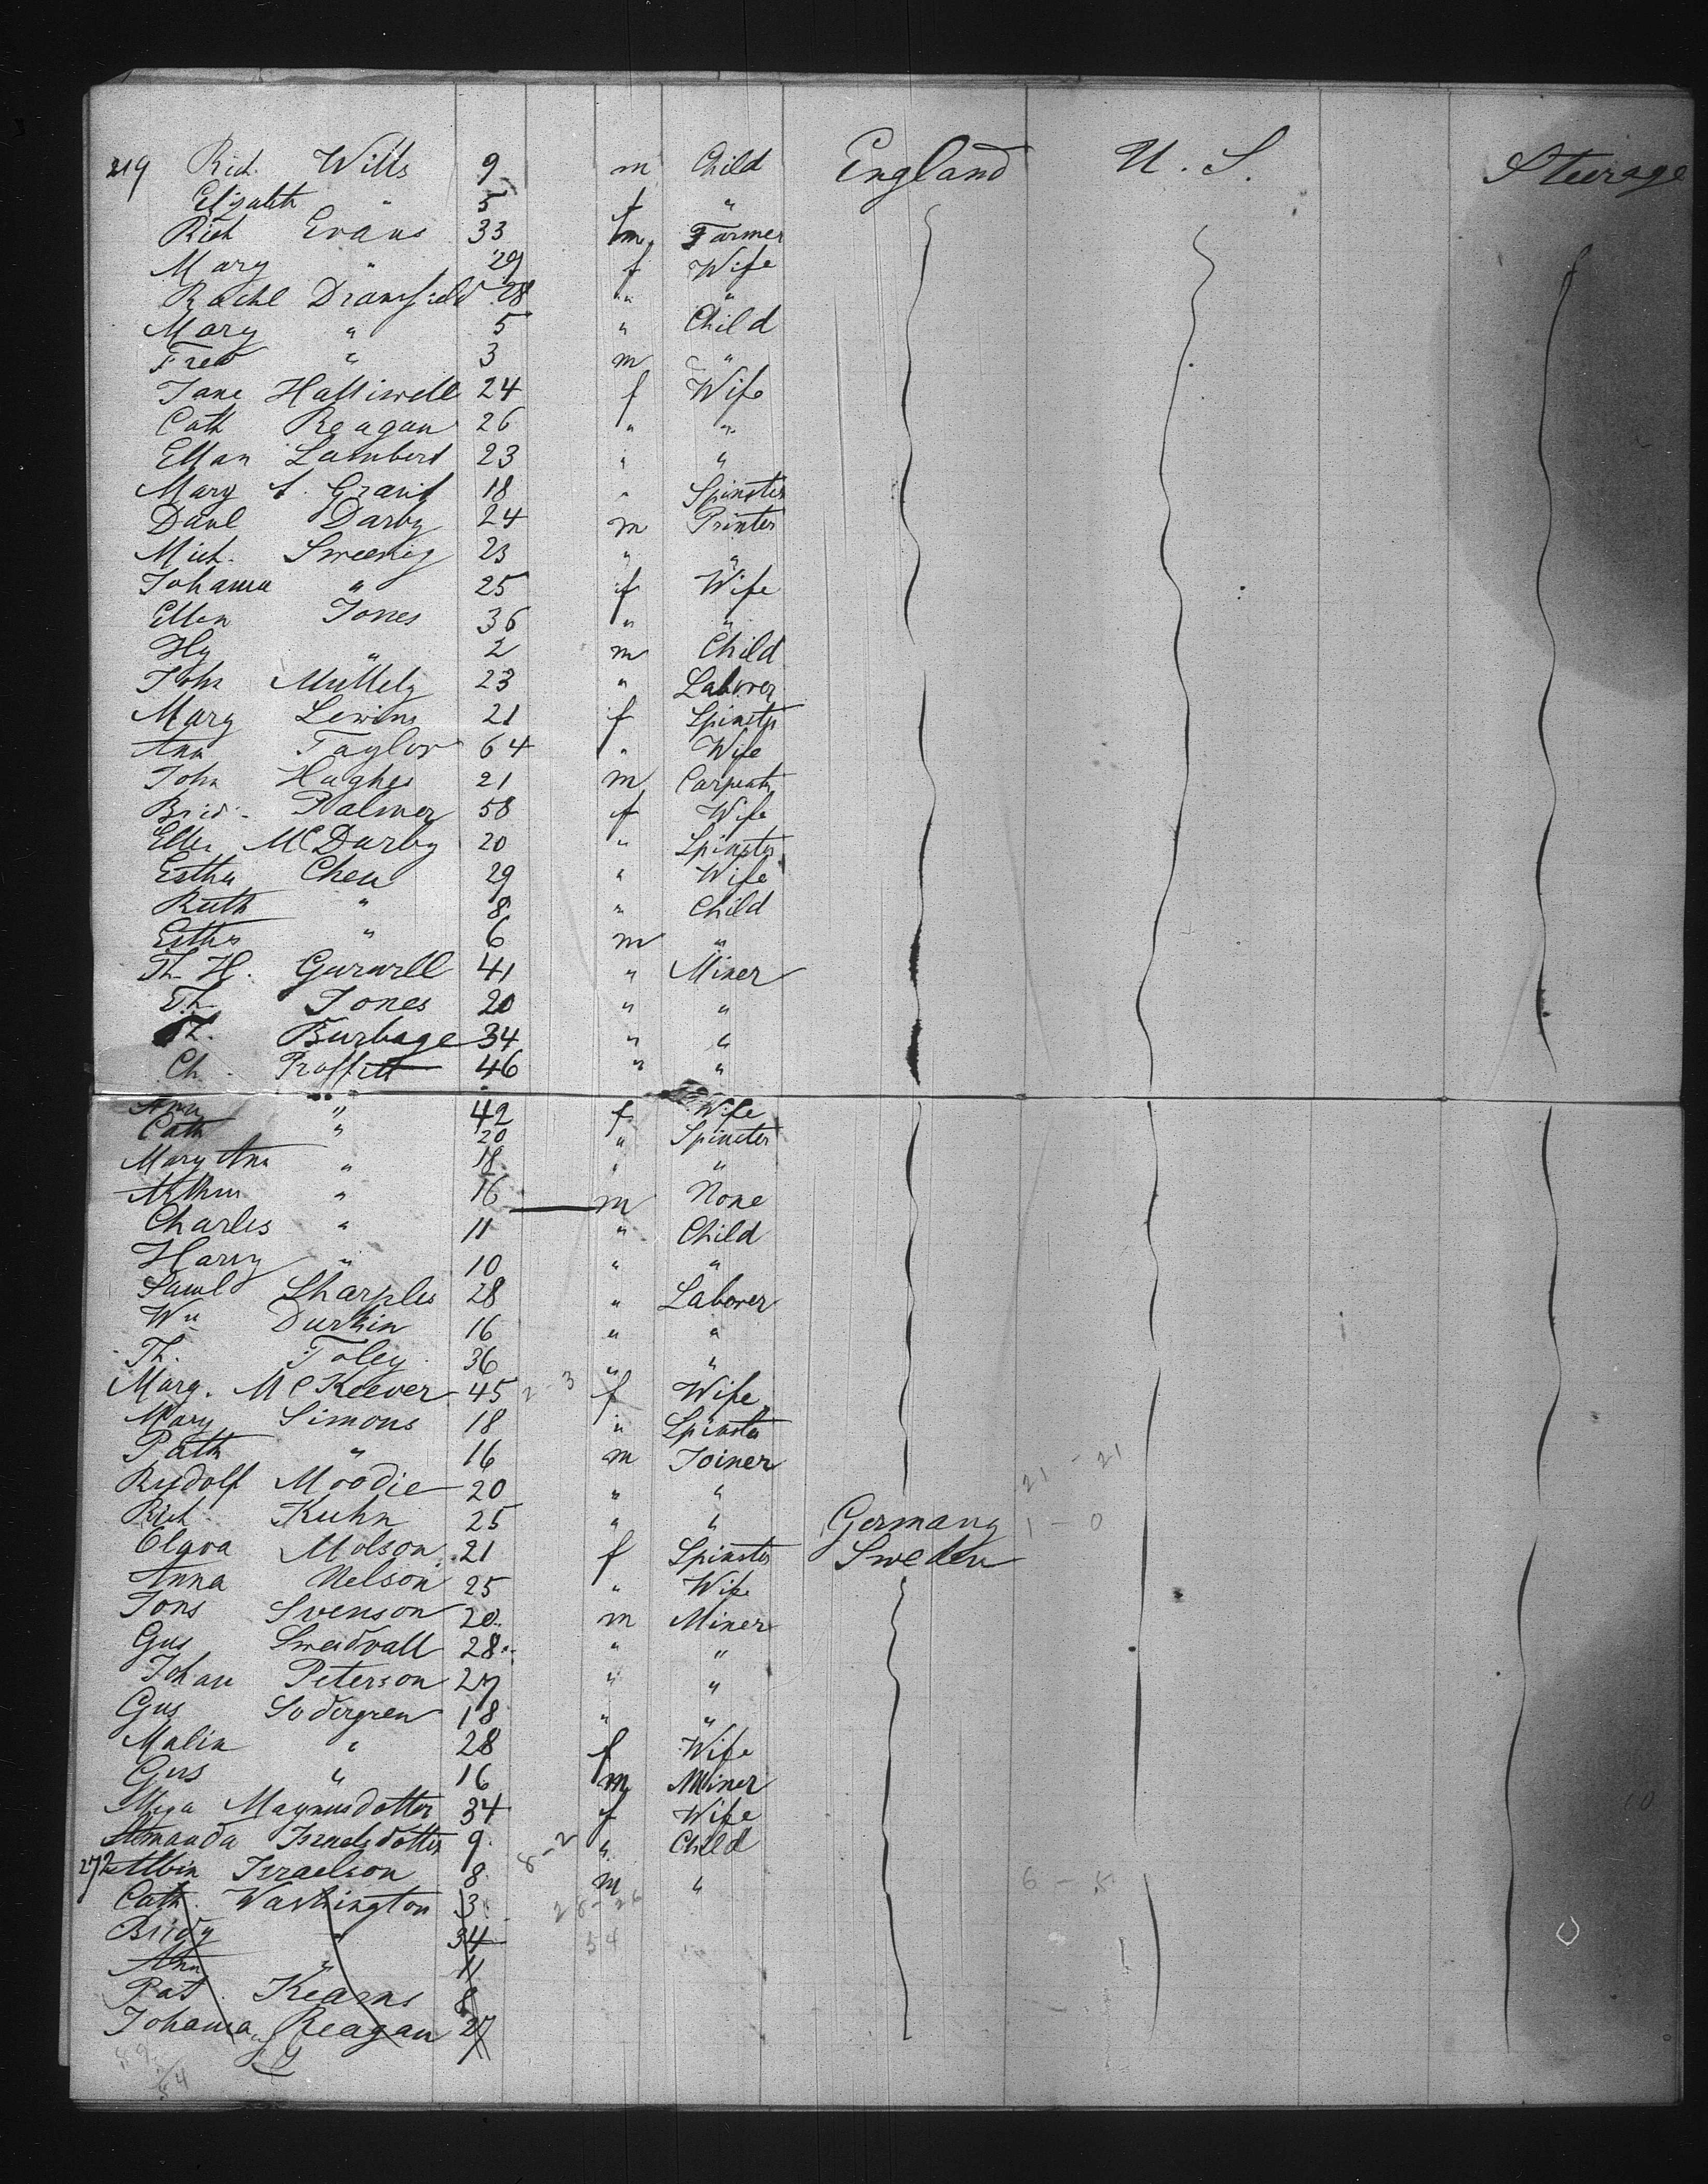 219 Rich. Wills 9 m Child England U. S. Steerage
Elizabeth " 5 f "
Rich Evans 33 m Farmer
Mary " 29 f Wife
Rachl 28 " "
Mary " 5 " Child
Fred " 3 m "
Jane Halliwell 24 f Wife
Cath Reagan 26 " "
Ellan Lambert 23 " "
Mary A. Grant 18 " Spinster
Danl Darby 24 m Printer
Mich. 23 " "
Johanna " 25 f Wife
Ellen Jones 36 " "
Hy " 2 m Child
John 23 " Laborer
Mary Lewins 21 f Spinstr
Ann Taylor 64 " Wife
John Hughes 21 m Carpentr
Brid. Palmer 58 f Wife
Ellen McDarby 20 " Spinster
Esther 29 " Wife
Ruth " 8 " Child
Esther " 6 m "
Th. H. 41 " Miner
Th. Jones 20 " "
Th. Burbage 34 " "
Ch. Proffitt 46 " "
Ann " 42 f Wife
Cath " 20 " Spinster
Mary Ann " 18 " "
Arthur " 16 m None
Charles " 11 " Child
Harry " 10 " "
Saml Sharples 28 " Laborer
Wm Durkin 16 " "
Th. Foley 36 " "
Marg. McKeever 45 2-3 f Wife
Mary Simons 18 " Spinster
Patk " 16 m Joiner 21-21
Rudolf Moodie 20 " "
Rich Kuhn 25 " " Germany 1-0
Clara Molson 21 f Spinster Sweden
Anna Nelson 25 " Wife
Jons Svenson 20 m Miner
Gus Swedvall 28 " "
Johan Peterson 27 " "
Gus Sodergren 18 " "
Malin " 28 f Wife
Gus " 16 m Miner
Magnusdotter 34 f Wife
Amanda Israelsdotter 9 8-2 " Child
272 Albin Israelson 8 m " 6-5
Cath. Washington 3 28-26
Bridg " 34 54
Ann " 11
Pat Kearns 8
Johanna Reagan 27
54